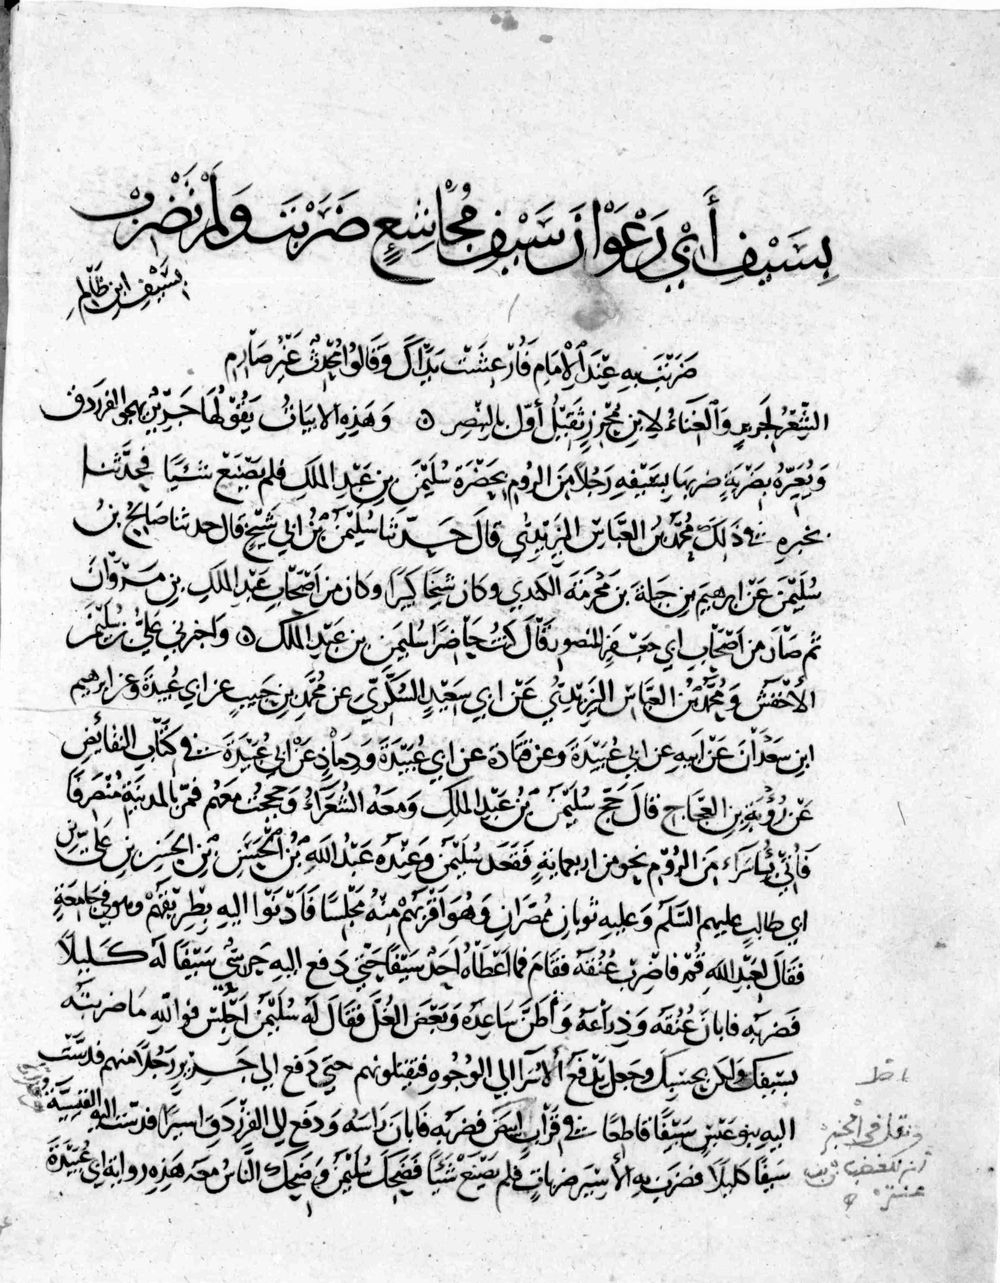 بِسَيْفِ أَبِي رَغْوَانَ سَيْفِ مُجَاشِعٍ ضَرَبْتَ وَلَمْ تَضْرِبْ
بِسَيْفِ ابْنِ ظَالِمِ
ضَرَبْتَ بِهِ عِنْدَ الْإِمَامِ فَأُرْعِشَتْ يَدَاكَ وَقَالُوا مُحْدَثٌ غَيْرُ صَارِمِ
الشِّعْرُ لِجَرِيرٍ وَالْغِنَاءُ لِابْنِ مُحْرِزٍ ثَقِيلُ أَوَّلَ بِالبِنْصِرِ ۞ وَهَذِهِ الابيَاتُ يَقُولُهَا جَرِيرٌ يهجو الفرزدق
وَيُعَيِّرُهُ بِضَرْبَةٍ ضربها بِسَيْفِهِ رَجُلًا مِنَ الرُّومِ بِحَضْرَةِ سُلَيْمَنَ بنِ عَبْدِ الملكِ فلم يَصْنَعْ شَيْئًا فحدَّثنا
بخبره في ذَلِكَ مُحَمَّدُ بنُ العَبَّاسِ اليَزِيْدِيُّ قَالَ حَدَّثَنَا سُلَيْمَنُ بنُ ابي شَيْخٍ قَالَ حدثنا صَالِحُ بنُ
سُلَيْمَنَ عَنْ ابرهيمَ بنِ جبلةَ بنَ مَخْرَمَةَ الكندي وكانَ شَيْخًا كَبِيرًا وَكَانَ مِنْ أَصْحَابِ عَبْدِ الملكِ بنِ مَرْوَانَ
ثم صَارَ من اصْحَابِ ابي جَعْفَرٍ المنصورِ قَالَ كنتُ حَاضِرًا سُلَيْمَنَ بنَ عَبْدِ الملكِ ۞ وَاخبرني عَلِيُّ بنُ سُلَيْمَنَ
الأَخْفَشُ وَمُحَمَّدُ بنُ العَبَّاسِ اليَزِيْدِيُّ عَنْ ابي سَعِيدٍ السُّكَّرِيِّ عن مُحَمَّدِ بنِ حَبِيبٍ عن ابي عُبَيْدَةَ وعن ابرهيم
ابنِ سَعْدَانَ عَنْ ابيهِ عن ابي عُبَيْدَةَ وَعن قتادةَ عن ابي عُبَيْدَةَ وَدماذٍ عَنْ ابي عُبَيْدَةَ في كتَابِ النقائضِ
عَنْ رُؤْبَةَ بنِ العجاج قالَ حَجَّ سُلَيْمَنُ بنُ عَبْدِ الملكِ وَمعهُ الشُّعَرَاءُ وَحججتُ معهم فمرَّ بالمدينةِ مُنْصَرِفًا
فَأُتِيَ بأُسَرَاءَ مِنَ الرُّومِ نحو من اربعمايةٍ فَقَعَدَ سُلَيْمَنُ وَعِنْدَهُ عَبْدُ اللهِ بنُ الْحَسَنِ بنِ الْحَسَنِ بنِ عَلِيِّ بن
ابي طالبٍ عليهم السَّلَمُ وَعليهِ ثوبانِ ممصَّرانِ وَهُوَ أَقْرَبُهُمْ مِنْهُ مَجْلِسًا فَأَدْنَوْا اليهِ بِطْرِيقَهُمْ وهو في جَامِعَةٍ
فقَالَ لِعَبْدِ اللهِ قُمْ فاضْرِبْ عُنُقَهُ فَقَامَ فما أَعْطَاهُ أَحَدٌ سَيْفًا حَتَّى دَفع اليهِ حَرَسِيٌّ سَيْفًا لَهُ كَلِيلًا
فَضربهُ فابانَ عُنُقَهُ وَذِرَاعَهُ وَأَطَنَّ سَاعِدَهُ وَبَعْضَ الغُلِّ فَقَالَ لَهُ سُلَيْمَنُ اجْلِسْ فواللهِ مَا ضربتهُ
بِسَيفكَ وَلكن بحسبكَ وَجعل يَدْفَعُ الأُسَرَا الي الوُجُوهِ فَيقتلونهم حتي دَفعَ الي جَرِيرٍ رَجُلًا منهم فدسَّتْ
اليهِ بنو عَبْسٍ سَيْفًا قَاطعًا في قِرَابٍ ابيَضَ فضربهُ فابانَ رَاسَهُ وَدَفع الي الفرزدقِ اسيرًا فدسَّت اليه القيسيّةُ
سَيفًا كليلًا فضَرَبَ بهِ الأَسِيرَ ضرباتٍ فلم يَصْنَعْ شَيْئًا فَضَحِكَ سُلَيْمَنُ وَضحِكَ النَّاسُ معهُ هَذِهِ روايةُ ابي عُبَيْدَةَ